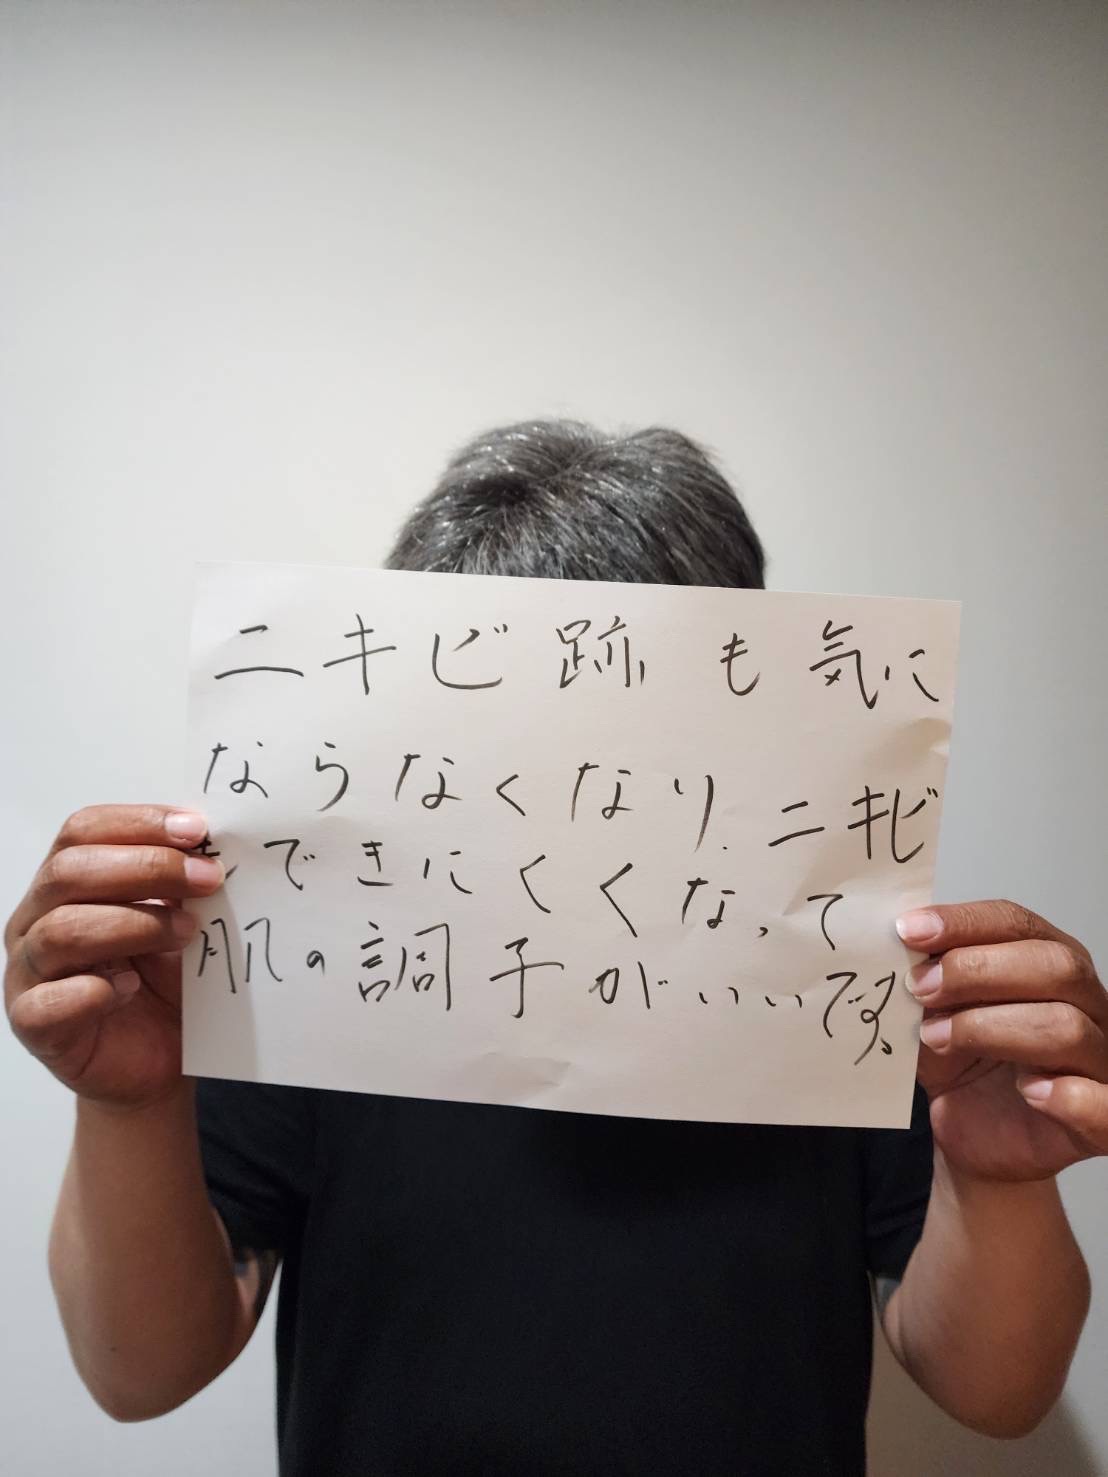 ニキビ跡も気に
ならなくなり、ニキビ
もできにくくなって
肌の調子がいいです。